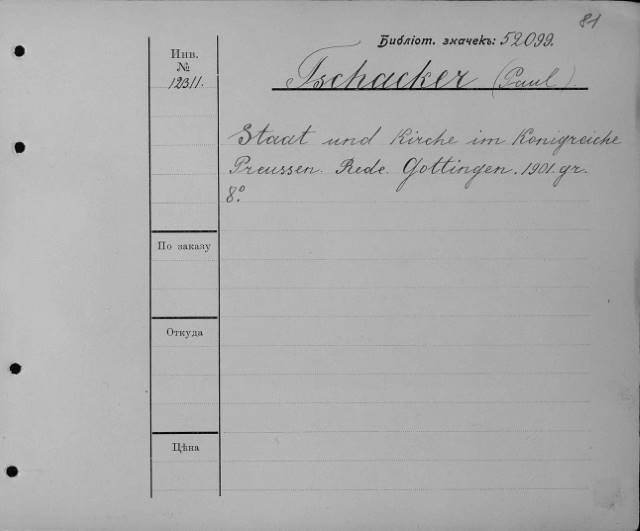 81
Библіот. значекъ: 52099.
Инв.
№
12311.
Tschacker (Paul)
Staat und Kirche im Konigreiche
Preussen. Rede. Gottingen. 1901. gr.
8º.
По заказу
Откуда
Цѣна